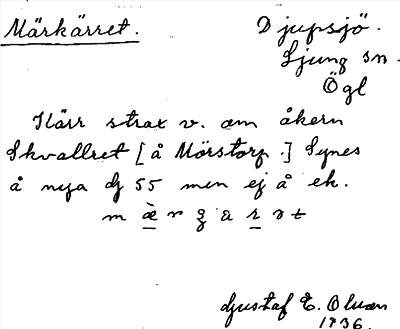 Märkärret.
Djupsjö.
Ljung sn.
Ögl
Kärr strax v. om åkern
Skvallret [å Mörstorp.] Synes
å nya dj 55 men ej å ek.
Gustaf E. Olsson
1936.